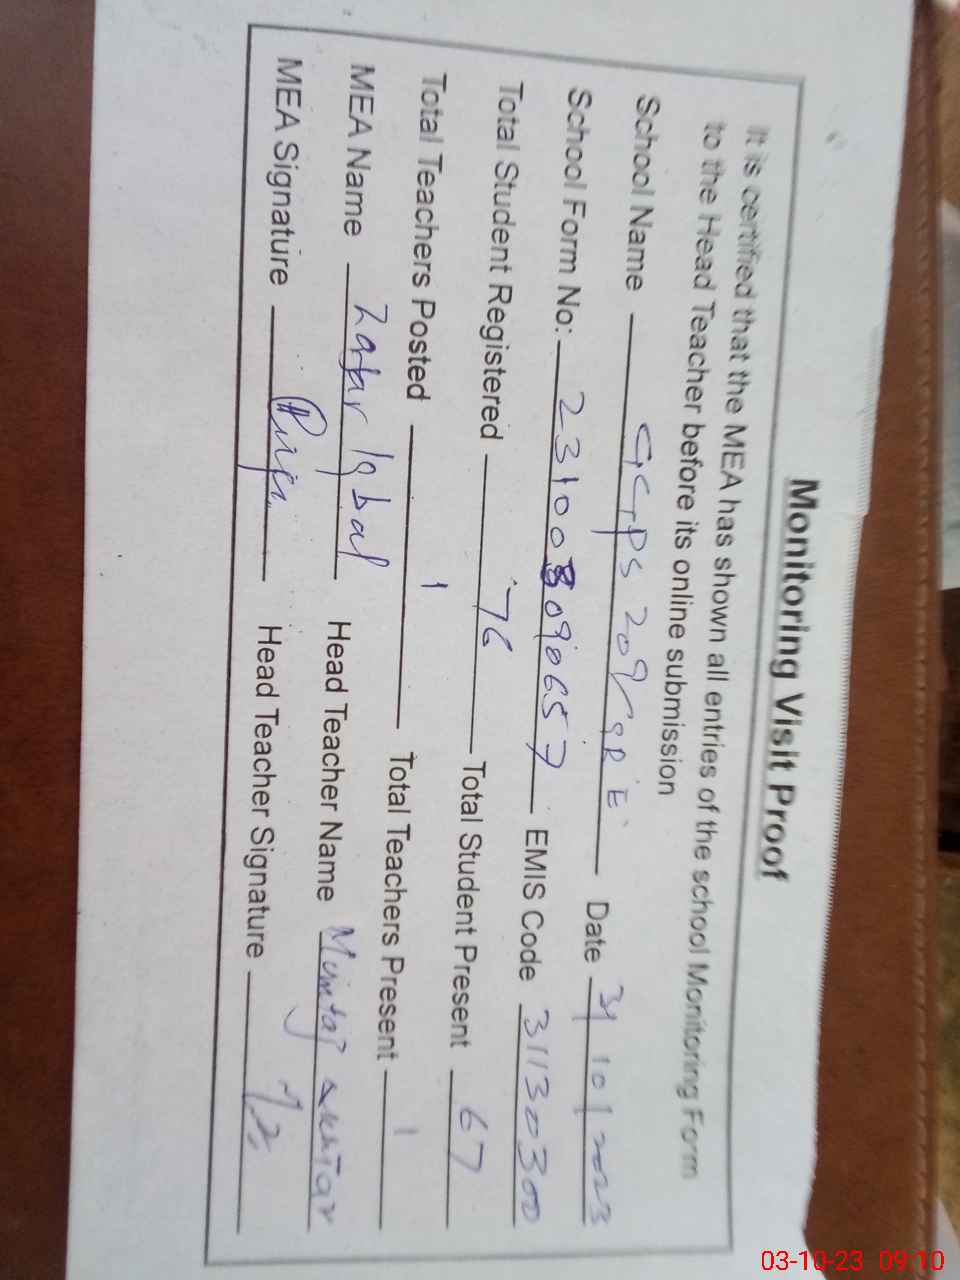 Monitoring Visit Proof
It is certified that the MEA has shown all entries of the school Monitoring Form
to the Head Teacher before its online submission
School Name GGPS 209/9R E Date 3/10/2023
School Form No: 231008090657 EMIS Code 31130300
Total Student Registered 76 Total Student Present 67
Total Teachers Posted 1 Total Teachers Present 1
MEA Name Zafar Iqbal Head Teacher Name Mumtaz akhtar
MEA Signature Head Teacher Signature
03-10-23 09:10